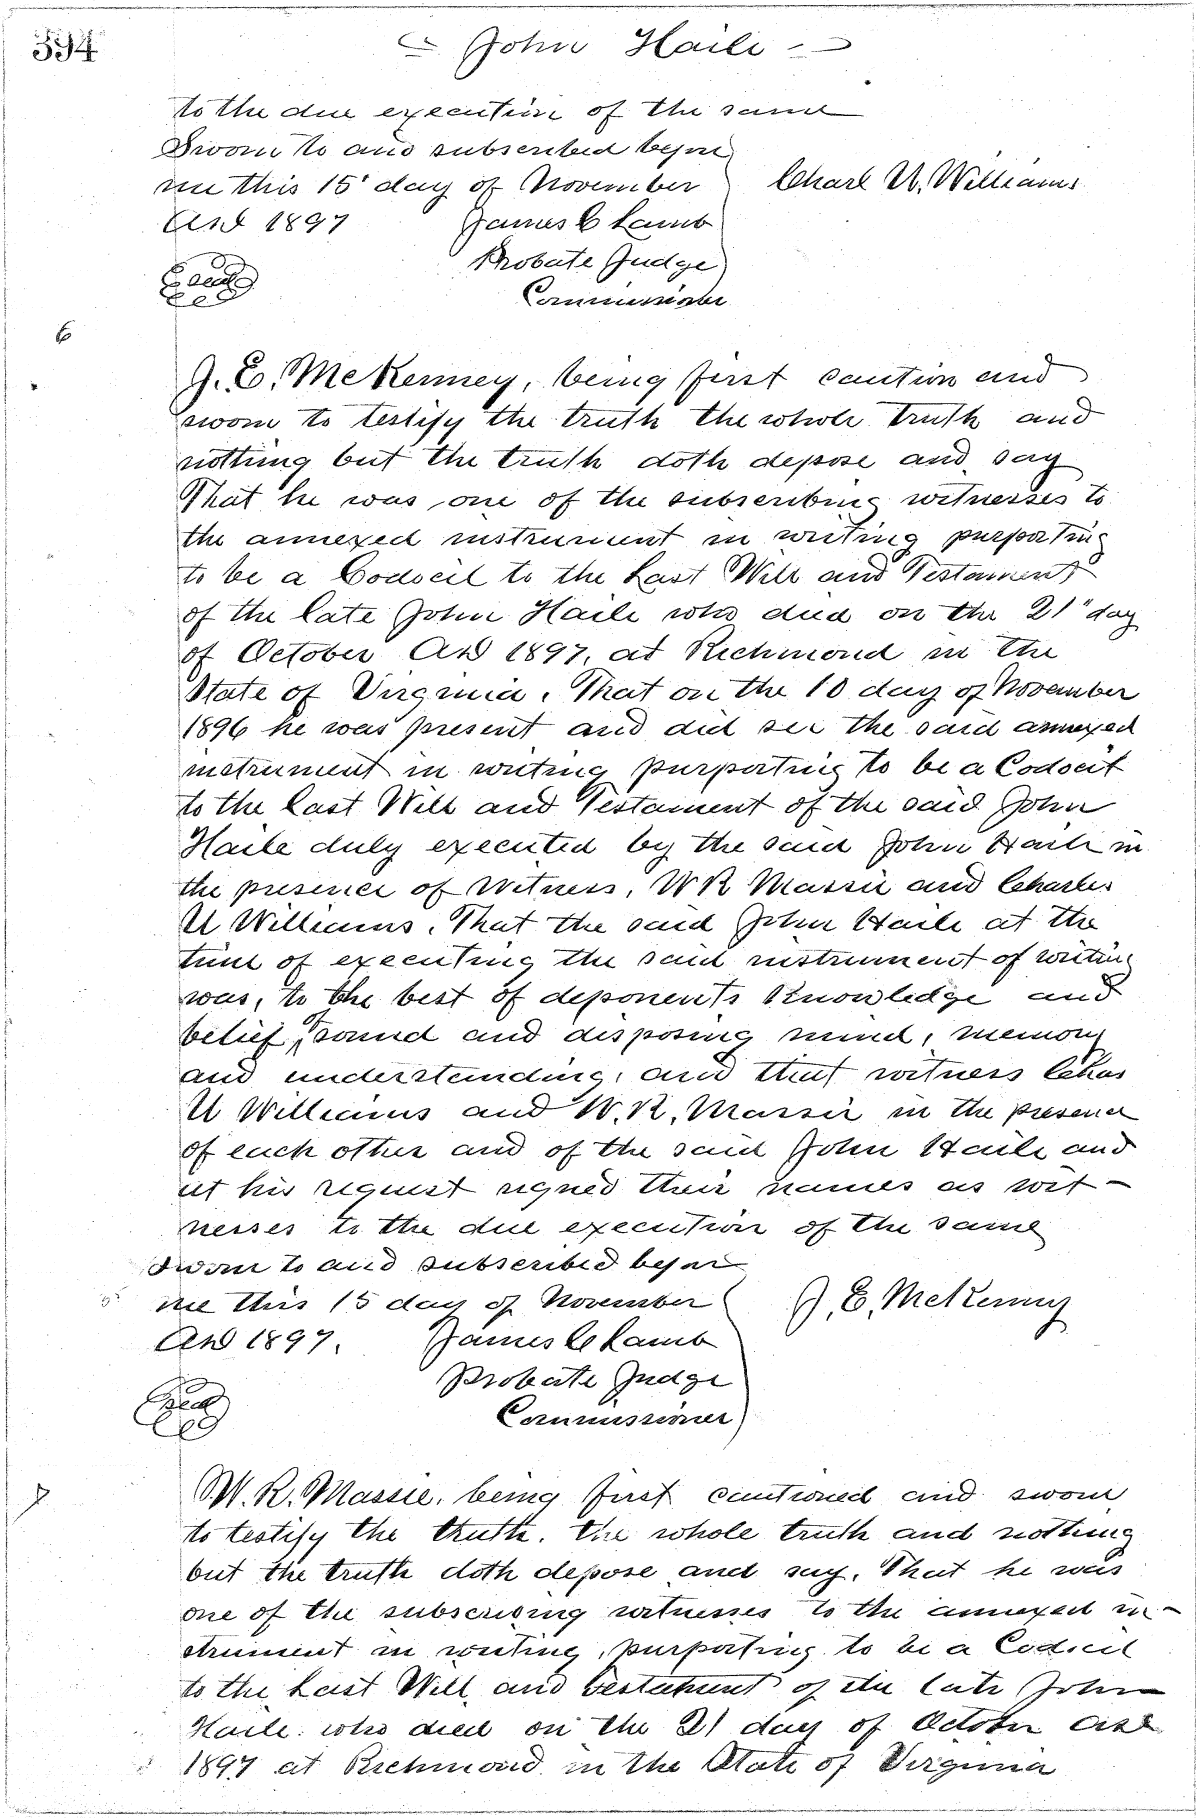 394
John Haile
to the due execution of the same
Sworn to and subscribed before
me this 15 day of November
Charl U. Williams
AD 1897 James C Lamb
Probate Judge
Seal
Commissioner
6
J. E. McKenney, being first caution and
sworn to testify the truth the whole truth and
nothing but the truth doth depose and say
That he was one of the subscribing witnesses to
the annexed instrument in writing purporting
to be a Codocil to the Last Will and Testament
of the late John Haile who died on the 21" day
of October AD 1897, at Richmond in the
State of Virginia. That on the 10 day of November
1896 he was present and did see the said annexed
instrument in writing purporting to be a Codocil
to the last Will and Testament of the said John
Haile duly executed by the said John Haile in
the presence of Witness, W R Massie and Charles
U Williams. That the said John Haile at the
time of executing the said instrument of writing
was, to the best of deponents Knowledge and
belief, of sound and disposing mind, memory
and understanding, and that witness Chas
U Williams and W. R. Massie in the presence
of each other and of the said John Haile and
at his request signed their names as wit-
nesses to the due execution of the same
Sworn to and subscribed before
me this 15 day of November
J. E. McKenney
AD 1897. James C Lamb
Probate Judge
Seal
Commissioner
7
W. R. Massie, being first cautioned and sworn
to testify the truth. the whole truth and nothing
but the truth doth depose and say. That he was
one of the subscribing witnesses to the annexed in-
strument in writing, purporting to be a Codicil
to the Last Will and testament of the late John
Haile who died on the 21 day of October AD
1897 at Richmond in the State of Virginia